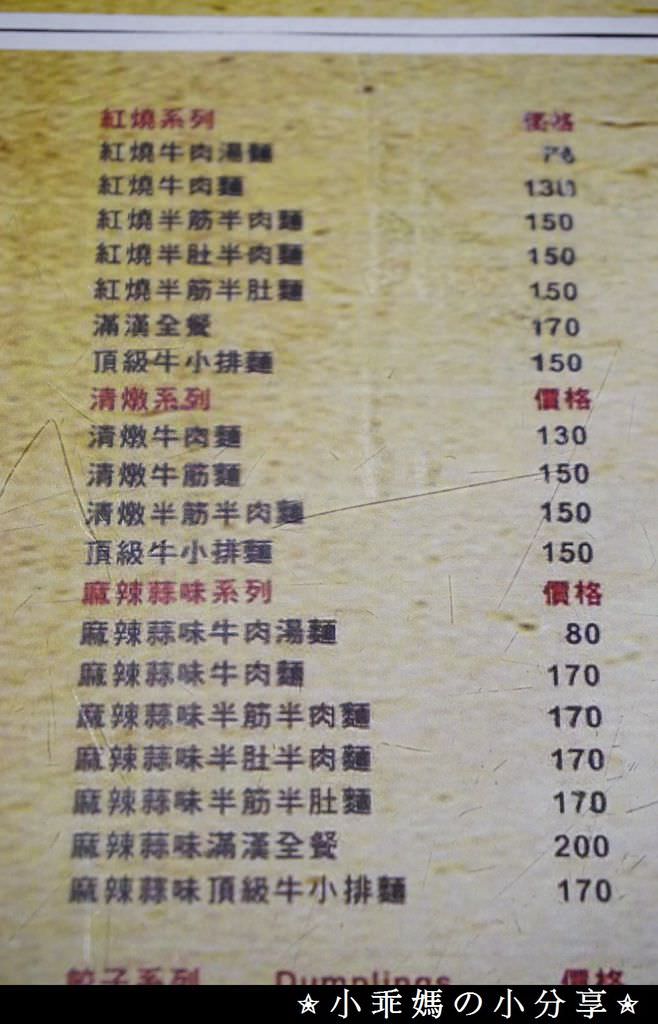 紅燒系列 價格
紅燒牛肉湯麵
紅燒牛肉麵 130
紅燒半筋半肉麵 150
紅燒半肚半肉麵 150
紅燒半筋半肚麵 150
滿漢全餐 170
頂級牛小排麵 150
清燉系列 價格
清燉牛肉麵 130
清燉牛筋麵 150
清燉半筋半肉麵 150
頂級牛小排麵 150
麻辣蒜味系列 價格
麻辣蒜味牛肉湯麵 80
麻辣蒜味牛肉麵 170
麻辣蒜味半筋半肉麵 170
麻辣蒜味半肚半肉麵 170
麻辣蒜味半筋半肚麵 170
麻辣蒜味滿漢全餐 200
麻辣蒜味頂級牛小排麵 170
餃子系列 Dumplings 價格
★小乖媽の小分享★